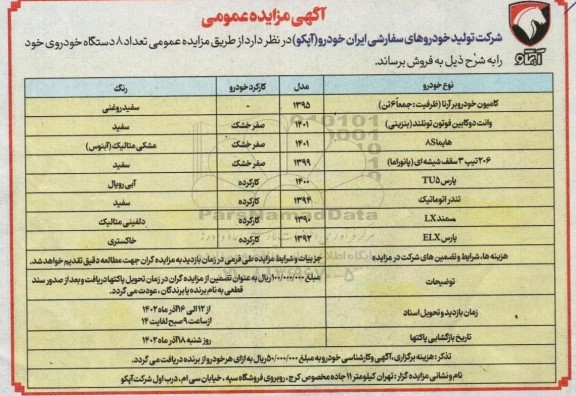 آگهی مزایده عمومی
شرکت تولید خودروهای سفارشی ایران خودرو (آپکو) در نظر دارد از طریق مزایده عمومی تعداد ۸ دستگاه خودروی خود
را به شرح ذیل به فروش برساند.
آپکو
نوع خودرو مدل کارکرد خودرو رنگ
کامیون خودروبر آرنا (ظرفیت: جمعاً ۶ تن) ۱۳۹۵ - سفید روغنی
وانت دوکابین فوتون تونلند (بنزینی) ۱۴۰۱ صفر خشک سفید
هایما ۸S ۱۴۰۱ صفر خشک مشکی متالیک (آبنوس)
۲۰۶ تیپ ۳ سقف شیشه ای (پانوراما) ۱۳۹۹ صفر خشک سفید
پارس TU۵ ۱۴۰۰ کارکرده آبی رویال
تندر اتوماتیک ۱۳۹۴ کارکرده سفید
سمند LX ۱۳۹۰ کارکرده دلفینی متالیک
پارس ELX ۱۳۹۲ کارکرده خاکستری
هزینه ها، شرایط و تضمین های شرکت در مزایده جزییات و شرایط مزایده طی فرمی در زمان بازدید به مزایده گران جهت مطالعه دقیق تقدیم خواهد شد.
توضیحات مبلغ ۱۰۰/۰۰۰/۰۰۰ ریال به عنوان تضمین از مزایده گران در زمان تحویل پاکتها دریافت و بعد از صدور سند
قطعی به نام برنده یا برندگان، عودت می گردد.
زمان بازدید و تحویل اسناد از ۱۲ الی ۱۶ آذر ماه ۱۴۰۲
از ساعت ۹ صبح لغایت ۱۴
تاریخ بازگشایی پاکتها روز شنبه ۱۸ آذر ماه ۱۴۰۲
تذکر: هزینه برگزاری، آگهی و کارشناسی خودرو به مبلغ ۵۰/۰۰۰/۰۰۰ ریال به ازای هر خودرو از برنده دریافت می گردد.
نام و نشانی مزایده گزار: تهران کیلومتر ۱۱ جاده مخصوص کرج، روبروی فروشگاه سپه، خیابان سی ام، درب اول شرکت آپکو
ParsNamadData